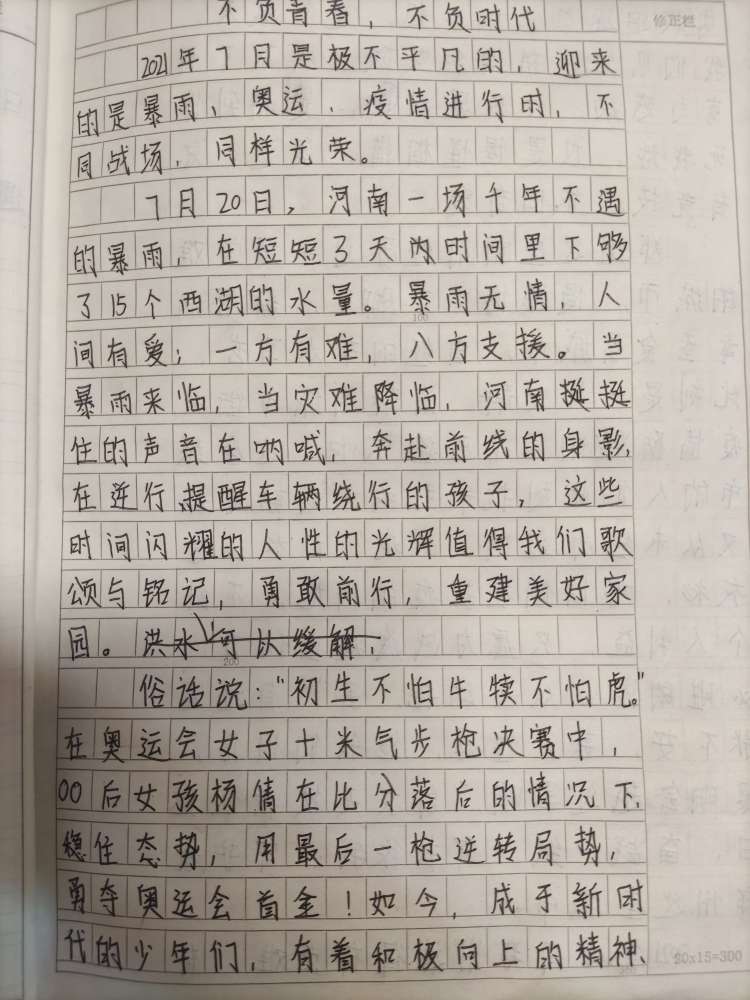 不负青春，不负时代
修正栏
2021年7月是极不平凡的，迎来
的是暴雨、奥运、疫情进行时，不
同战场，同样光荣。
7月20日，河南一场千年不遇
的暴雨，在短短3天内时间里下够
了15个西湖的水量。暴雨无情，人
100
间有爱；一方有难，八方支援。当
暴雨来临，当灾难降临，河南挺挺
住的声音在呐喊，奔赴前线的身影，
在逆行，提醒车辆绕行的孩子，这些
时间闪耀的人性的光辉值得我们歌
颂与铭记，勇敢前行，重建美好家
园。洪水可以缓解，
200
俗话说："初生不怕牛犊不怕虎。"
在奥运会女子十米气步枪决赛中，
00后女孩杨倩在比分落后的情况下，
稳住态势，用最后一枪逆转局势，
勇夺奥运会首金！如今，成于新时
代的少年们，有着和极向上的精神、
20x15=300